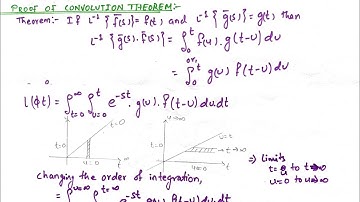 PROOF OF CONVOLUTION THEOREM:-
Theorem:- If L⁻¹{f̄(s)} = f(t) and L⁻¹{ḡ(s)} = g(t) then
L⁻¹{ḡ(s).f̄(s)} = ∫₀ᵗ f(u).g(t-u)du
or,
= ∫₀ᵗ g(u) f(t-u)du
L(φt) = ∫_{t=0}^{∞} ∫_{u=0}^{t} e^{-st}.g(u).f(t-u)du dt
t=0
u=0
u→∞
u=t
t→∞
t=0
u=0
⇒ limits
t=u to t→∞
u=0 to u→∞
changing the order of integration,
= ∫^{u=∞} ∫^{t=∞} e^{-st}.g(u) f(t-u) du dt